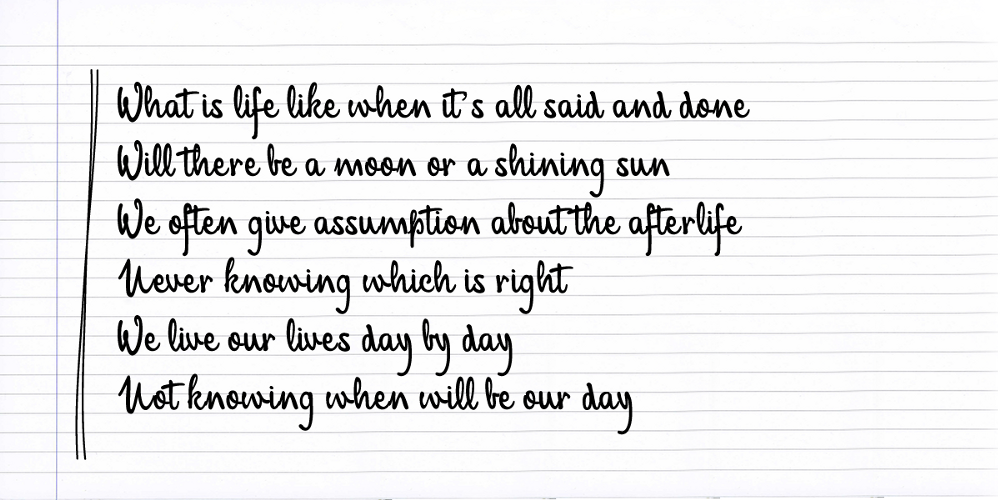 What is life like when it's all said and done
Will there be a moon or a shining sun
We often give assumption about the afterlife
Never knowing which is right
We live our lives day by day
Not knowing when will be our day